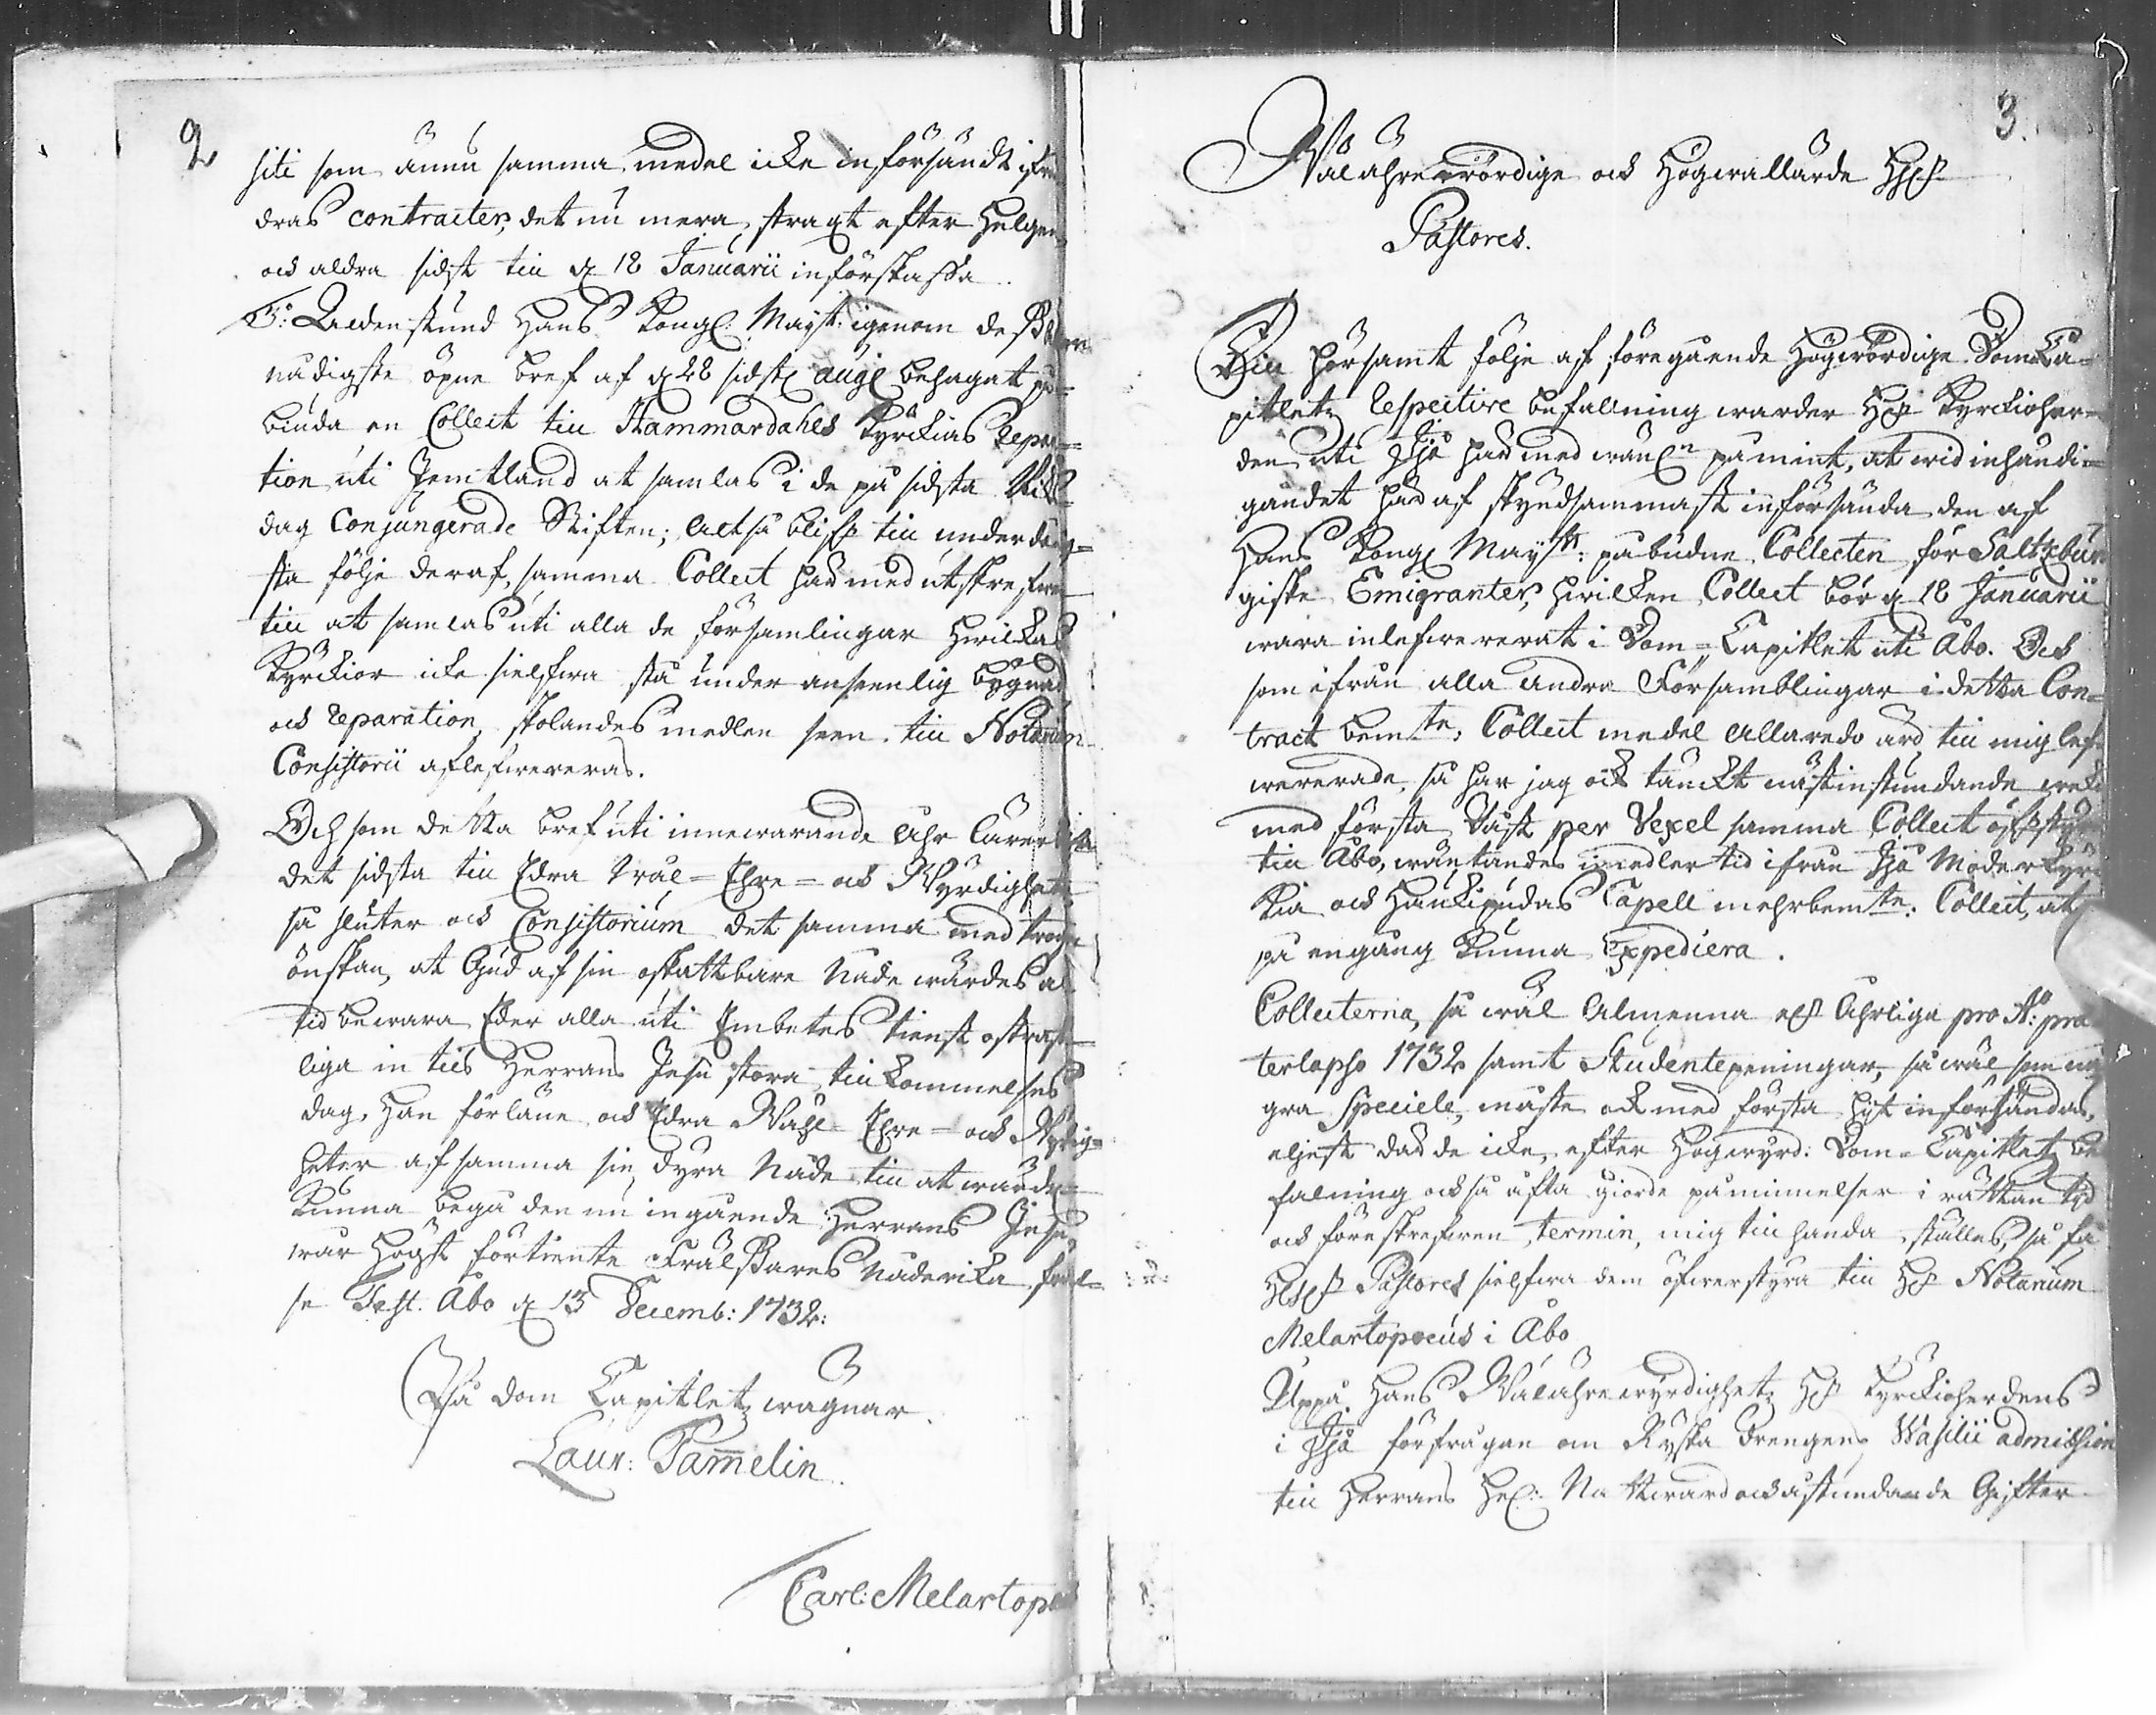 2
siti som ännu samma medel icke införsändt ifrå
dras contracter, det nu mera, straxt efter Helgen
och aldra sidst till d. 18 Januarii införskaffa.
5: Alldenstund Hans Kongl: Mayt: igenom dess
nådigste öpne bref af d. 28 sidstl. aug. behagat på=
biuda en Collect till Hammardahls Kyrckias Repara=
tion uti Jemtland at samlas i de på sidsta Riks=
dag Conjungerade Stiften; Altså blifr till underdånig=
sta följe deraf, samma Collect härmed utskrefwen
till at samlas uti alla de församlingar hwilkas
Kyrckior icke sielfwa stå under ansenlig bygnad
och reparation, skolandes medlen sen till Notarium
Consistorii aflefwereras.
Och som detta bref uti innewarande Ahr lärer blifa
det sidsta till Edra Wäl=Ehre= och Wyrdigheter,
så sluter och Consistorium det samma med trogen
önskan, at Gud af sin oskattbara Nåde wärdes al=
tid bewara Eder alla uti Embetes tienst ostraff=
liga in till Herrans Jesu stora tillkommelses
dag, Han förläne och Edra Wähl= Ehre= och Wyrdig=
heter af samma sin dyra Nåde till at wärde=
kunna begå den nu ingående Herrans Jesu
wår Högst förtiente Frälsares Nåderika födel=
se Fest. Åbo d. 13 Decemb: 1732.
På Dom Capitlets wägnar
Laur: Tammelin.
Carl: Melartopæus
3.
Wälährewördige och Högwällärde Hrr
Pastores.
Till hörsamt följe af föregående Högwördige DomCa=
pitlets respective befallning warder Hr Kyrckioher=
den uti Ijå härmed wänln påmint, at wid inhändi=
gandet häraf skyndsammast införsända den af
Hans Kongl Mayts: påbudne Collecten för Saltzbur
giske Emigranter, hwilken Collect bör d. 18 Januarii
wara inlefwererat i Dom=Capitlet uti Åbo. Och
som ifrån alla andra Församblingar i detta Con=
tract bemte: Collect medel allaredo ärd till mig lef=
wererade, så har jag och tänckt nästinstundande weka
med första Påst per Vexel samma Collect öfwerstyra
till Åbo, wäntandes imedlertid ifrån Ijå Moderkyrc
kia och Haukipudas Capell mehrbemte: Collect, at
på en gång kunna Expediera.
Collecterna, så wäl Almenna och Åhrliga pro Ao: præ
terlapso 1732 samt Studentepeningar, så wäl som nå
gra Speciele, måste och med första hijt införsändas,
eljest där de icke, efter Högwyrd: Dom=Capitlets be
falning och så ofta giorde påminnelser i rättan tijd
och föreskrefwen termin, mig till handa ställes, så få
Hrr Pastores sielfwa dem öfwerstyra till Hr Notarium
Melartopæus i Åbo
Uppå Hans Wälährewyrdighets Hr Kyrckioherdens
i Ijå förfrågan om Ryska Drengens Wasilii admission
till Herrans Hel: Nattward och åstundande Gifter